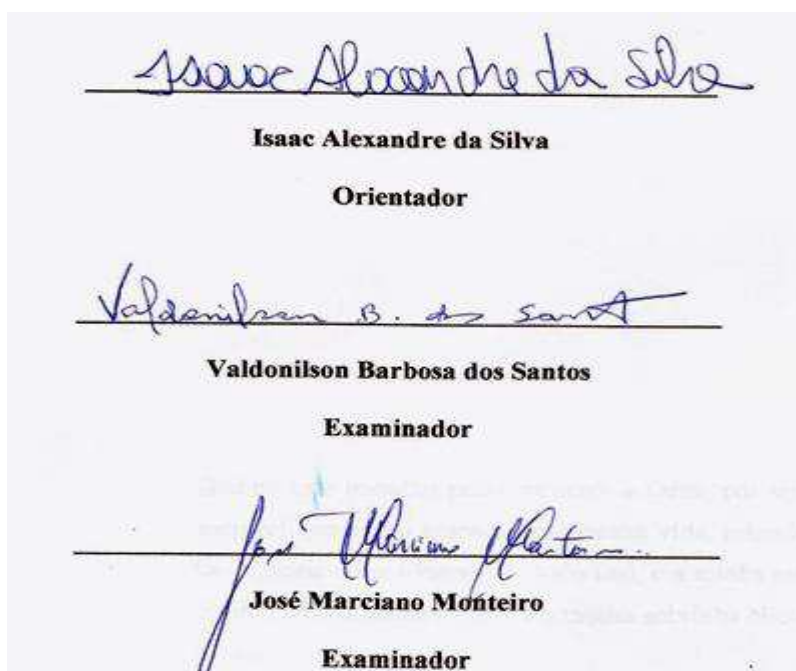 Isaac Alexandre da Silva
Isaac Alexandre da Silva
Orientador
Valdonilson B. dos Sant
Valdonilson Barbosa dos Santos
Examinador
José Marciano Monteiro
José Marciano Monteiro
Examinador